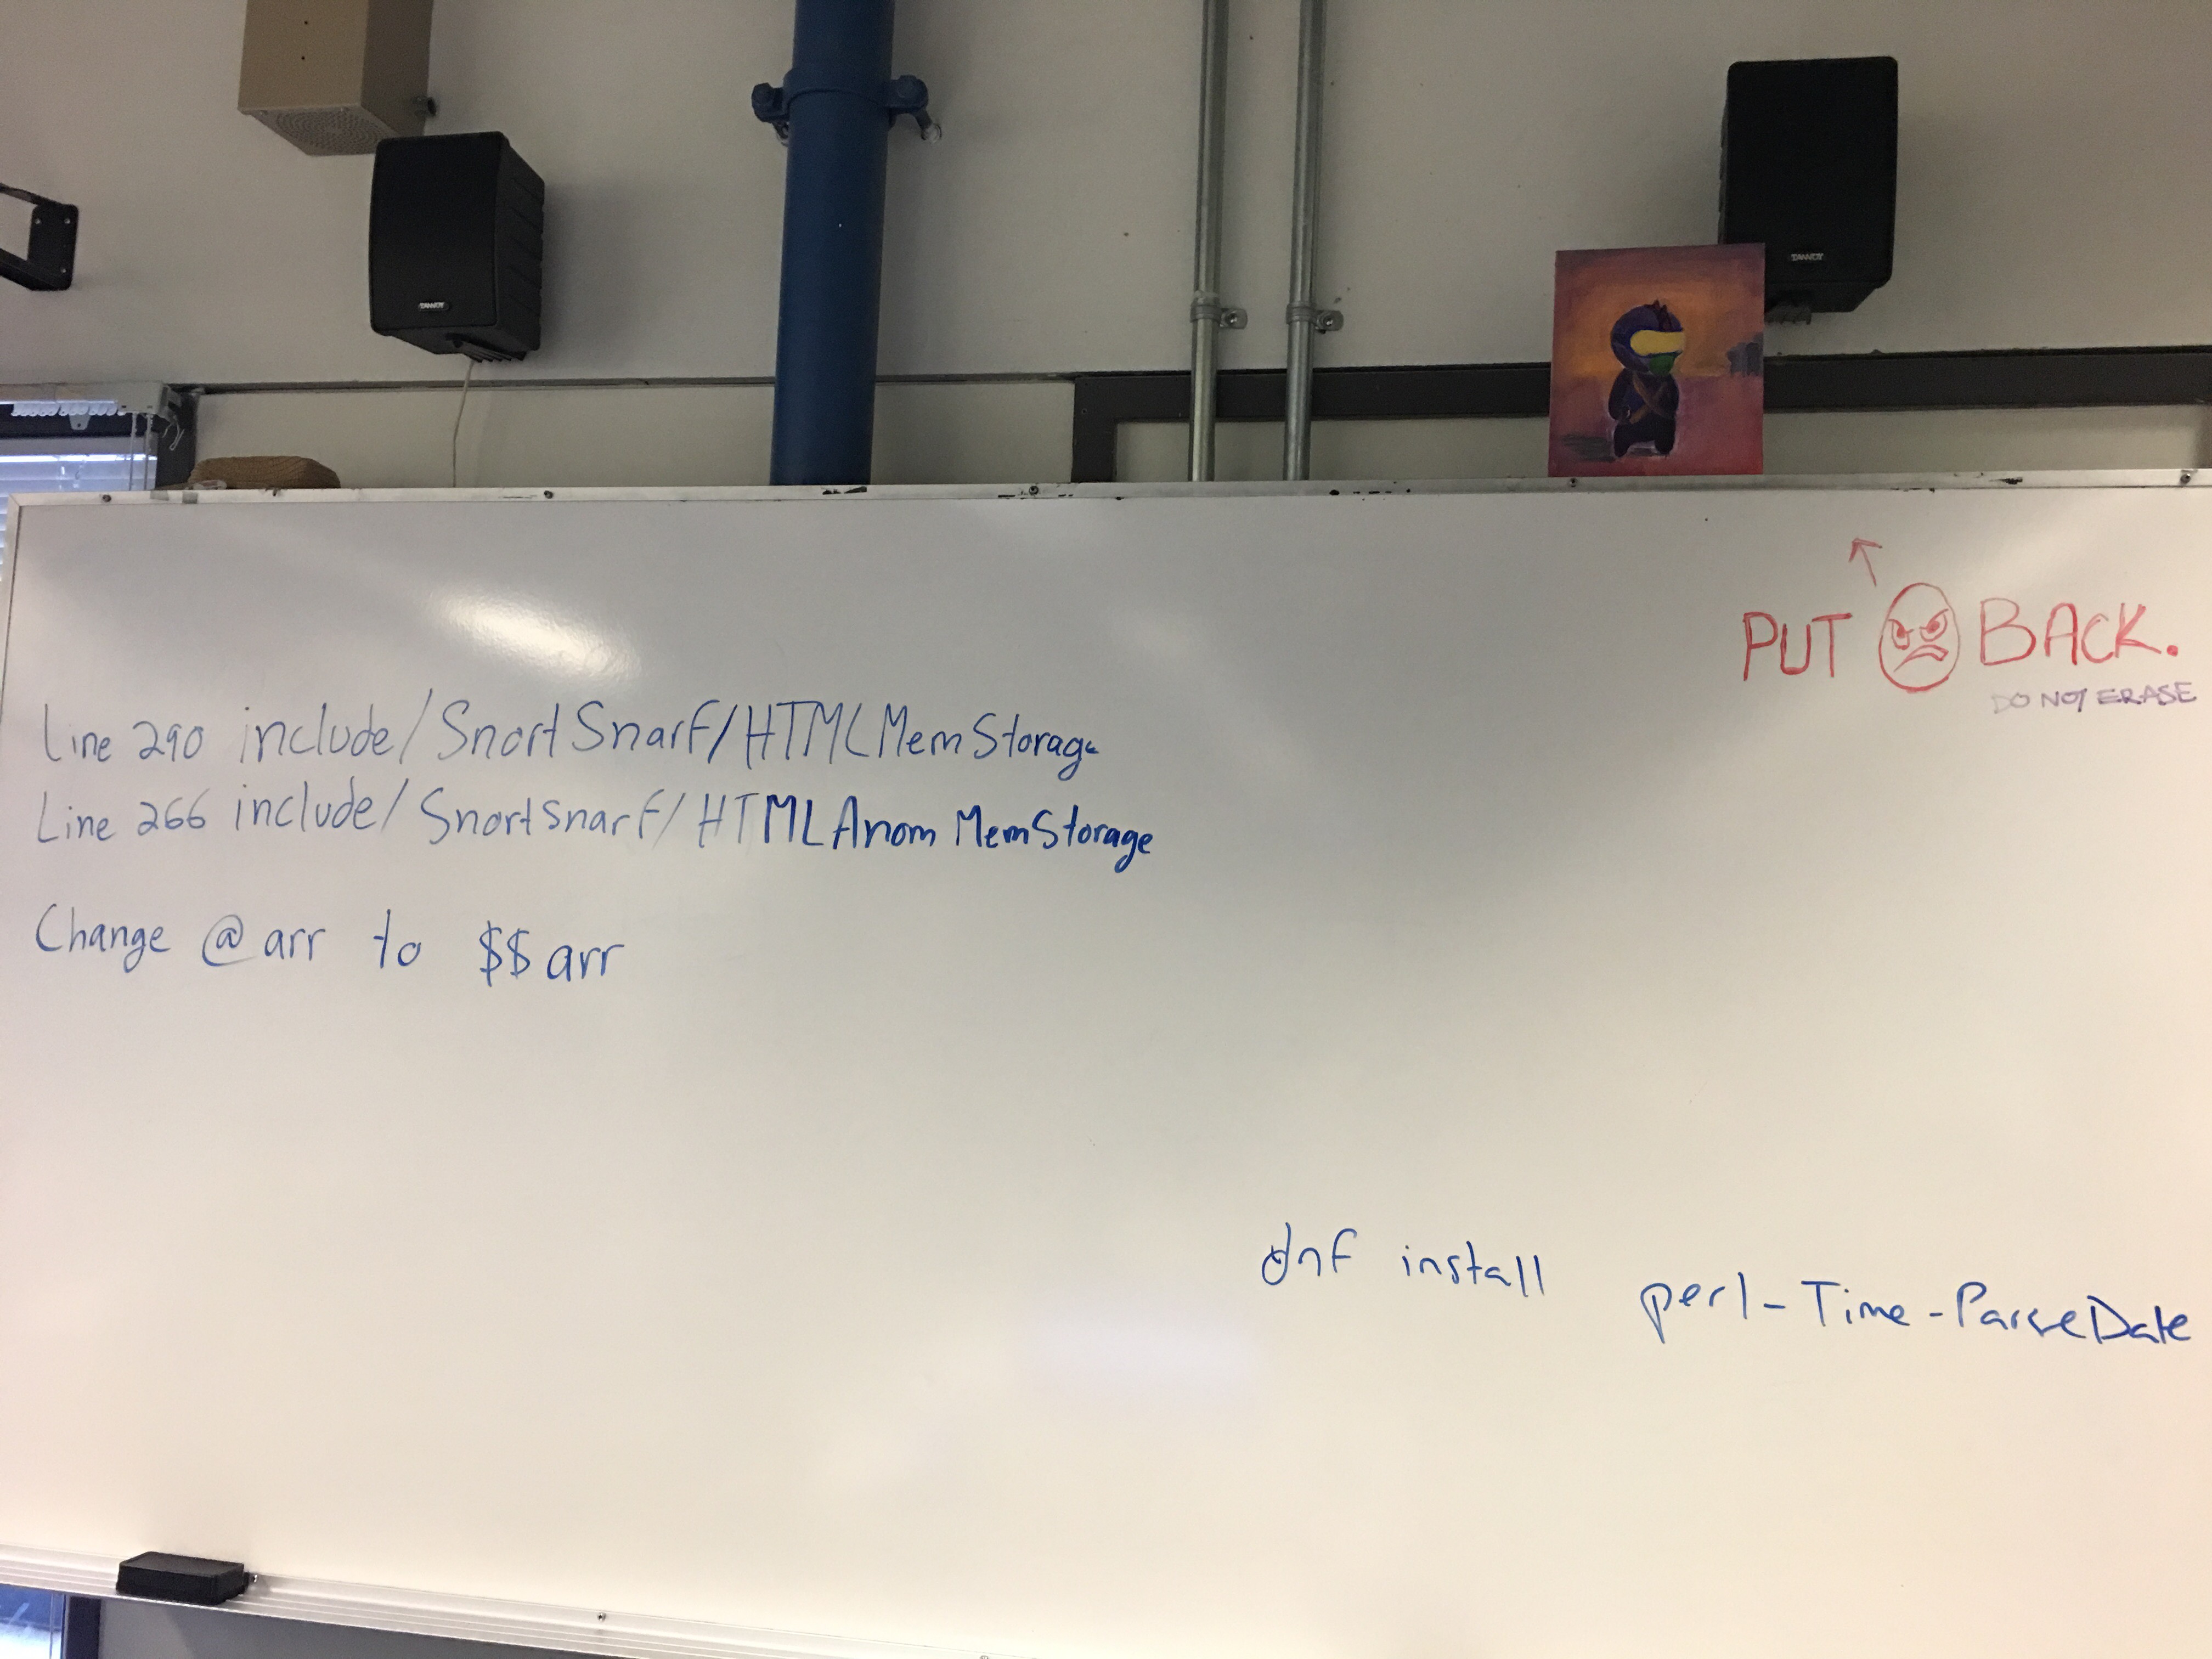 TANNOY
TANNOY
PUT BACK.
DO NOT ERASE
Line 290 include/SnortSnarf/HTMLMemStorage
Line 266 include/Snortsnarf/HTMLAnomMemStorage
Change @arr to $$arr
dnf install perl-Time-ParseDate